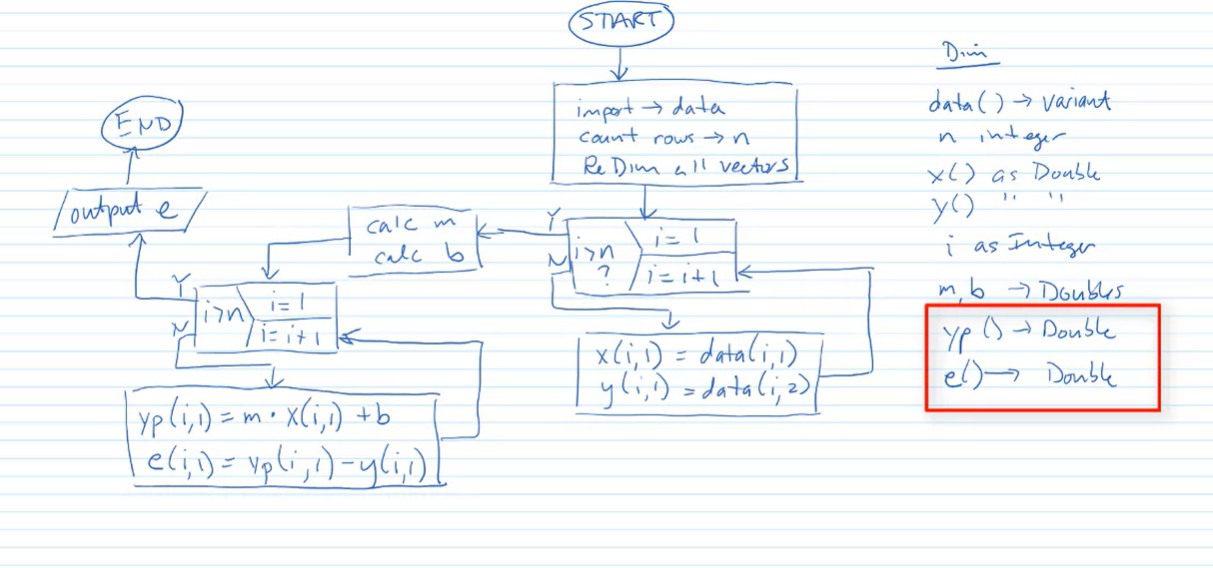 START
import → data
count rows → n
ReDim all vectors
i>n
?
i=1
i=i+1
Y
N
x(i,1) = data(i,1)
y(i,1) = data(i,2)
calc m
calc b
i>n
i=1
i=i+1
Y
N
yp(i,1) = m · x(i,1) + b
e(i,1) = yp(i,1) - y(i,1)
output e
END
Dim
data() → variant
n integer
x() as Double
y() " "
i as Integer
m,b → Doubles
yp() → Double
e() → Double